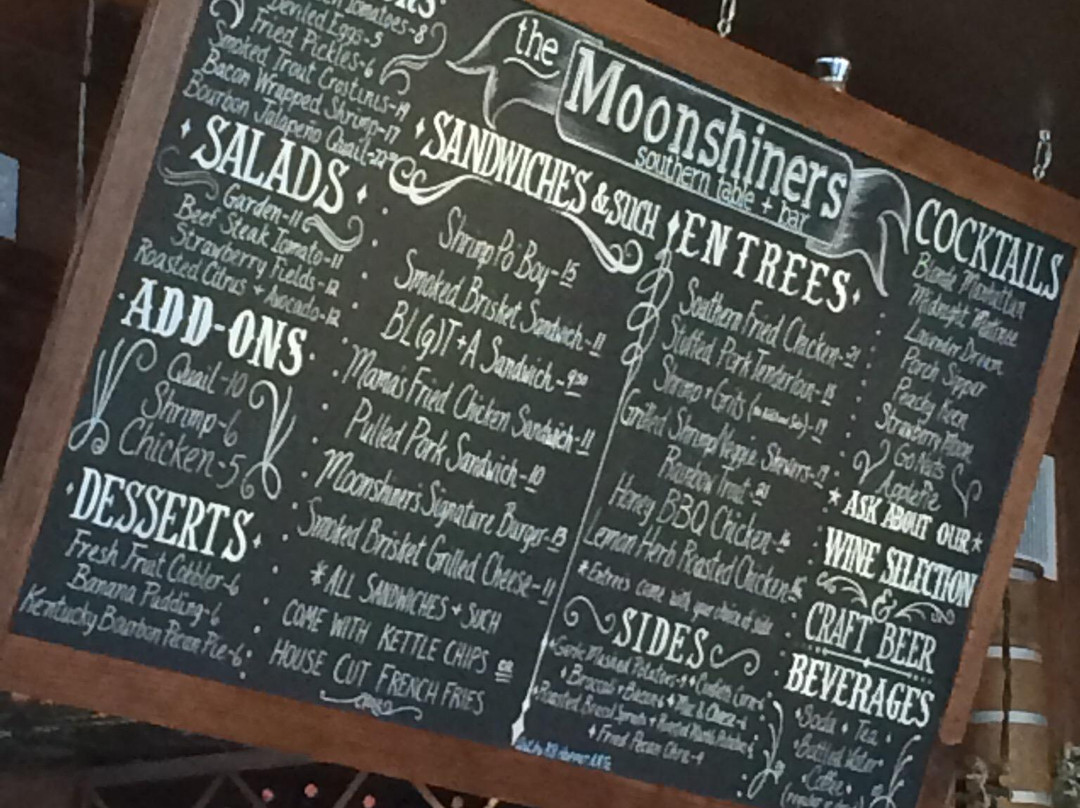 Tomatoes-8
Deviled Eggs-5
Fried Pickles-6
Smoked Trout Crostinis-14
Bacon Wrapped Shrimp-17
Bourbon Jalapeño Quail-22
SALADS
Garden-11
Beef Steak Tomato-11
Strawberry Fields-12
Roasted Citrus + Avocado-12
ADD-ONS
Quail-10
Shrimp-6
Chicken-5
DESSERTS
Fresh Fruit Cobbler-6
Banana Pudding-6
Kentucky Bourbon Pecan Pie-6
the
Moonshiners
southern table + bar
SANDWICHES & SUCH
Shrimp Po' Boy-15
Smoked Brisket Sandwich-11
BL(g)T+A Sandwich-9.50
Mama's Fried Chicken Sandwich-11
Pulled Pork Sandwich-10
Moonshiners Signature Burger-13
Smoked Brisket Grilled Cheese-11
*ALL SANDWICHES + SUCH
COME WITH KETTLE CHIPS OR
HOUSE CUT FRENCH FRIES
ENTREES
Southern Fried Chicken-21
Stuffed Pork Tenderloin-18
Shrimp + Grits -19
Grilled Shrimp/Veggie Skewers-19
Rainbow Trout-21
Honey BBQ Chicken-16
Lemon Herb Roasted Chicken-16
*Entrees come with your choice of side
SIDES
Garlic Mashed Potatoes
Broccoli + Bacon Mac & Cheese
Roasted Brussel Sprouts
Fried Pecan Okra-4
COCKTAILS
Blonde Manhattan
Midnight
Lavender Dream
Porch Sipper
Peachy Keen
Strawberry
Go Nuts
Apple Pie
*ASK ABOUT OUR*
WINE SELECTION
&
CRAFT BEER
BEVERAGES
Soda + Tea
Bottled Water
Coffee